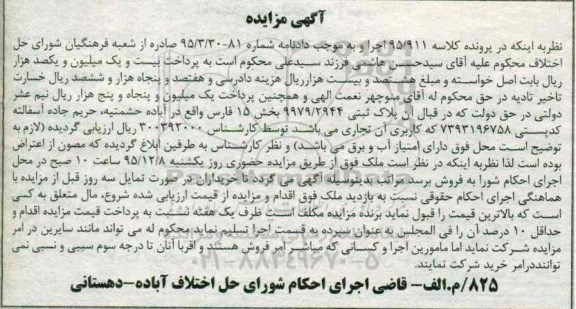 آگهی مزایده
نظربه اینکه در پرونده کلاسه ۹۵/۹۱۱ اجرا و به موجب دادنامه شماره ۸۱-۹۵/۳/۳۰ صادره از شعبه فرهنگیان شورای حل
اختلاف محکوم علیه آقای سیدحسن هاشمی فرزند سیدعلی محکوم است به پرداخت بیست و یک میلیون و یکصد هزار
ریال بابت اصل خواسته و مبلغ هشتصد و بیست هزارریال هزینه دادرسی و هفتصد و پنجاه هزار و ششصد ریال خسارت
تاخیر تادیه در حق محکوم له آقای منوچهر نعمت الهی و همچنین پرداخت یک میلیون و پنجاه و پنج هزار ریال نیم عشر
دولتی در حق دولت که در قبال آن پلاک ثبتی ۹۹۷۹/۲۹۴۴ بخش ۱۵ فارس واقع در آباده حشمتیه، حریم جاده آسفالته
کدپستی ۷۳۹۳۱۹۶۷۵۸ که کاربری آن تجاری می باشد توسط کارشناس ۳۰۰۳۹۲۰۰۰ ریال ارزیابی گردیده (لازم به
توضیح است محل فوق دارای امتیاز آب و برق می باشد) و نظر کارشناس به طرفین ابلاغ گردیده که مصون از اعتراض
بوده است لذا نظربه اینکه در نظر است ملک فوق از طریق مزایده حضوری روز یکشنبه ۹۵/۱۲/۸ ساعت ۱۰ صبح در محل
اجرای احکام شورا به فروش برسد مراتب بدینوسیله آگهی می گردد تا خریداران در صورت تمایل سه روز قبل از مزایده با
هماهنگی اجرای احکام حقوقی نسبت به بازدید ملک فوق اقدام و مزایده از قیمت ارزیابی شده شروع، مال متعلق به کسی
است که بالاترین قیمت را قبول نماید برنده مزایده مکلف است ظرف یک هفته نسبت به پرداخت قیمت مزایده اقدام و
حداقل ۱۰ درصد آن را فی المجلس به عنوان سپرده به قسمت اجرا تسلیم نماید محکوم له می تواند مانند سایرین در امر
مزایده شرکت نماید اما مامورین اجرا و کسانی که مباشر امر فروش هستند و اقربا آنان تا درجه سوم سببی و نسبی نمی
توانند درامر خرید شرکت نمایند.
۸۲۵/م.الف- قاضی اجرای احکام شورای حل اختلاف آباده-دهستانی
۰۲۱-۸۸۳۴۹۶۷۰-۵